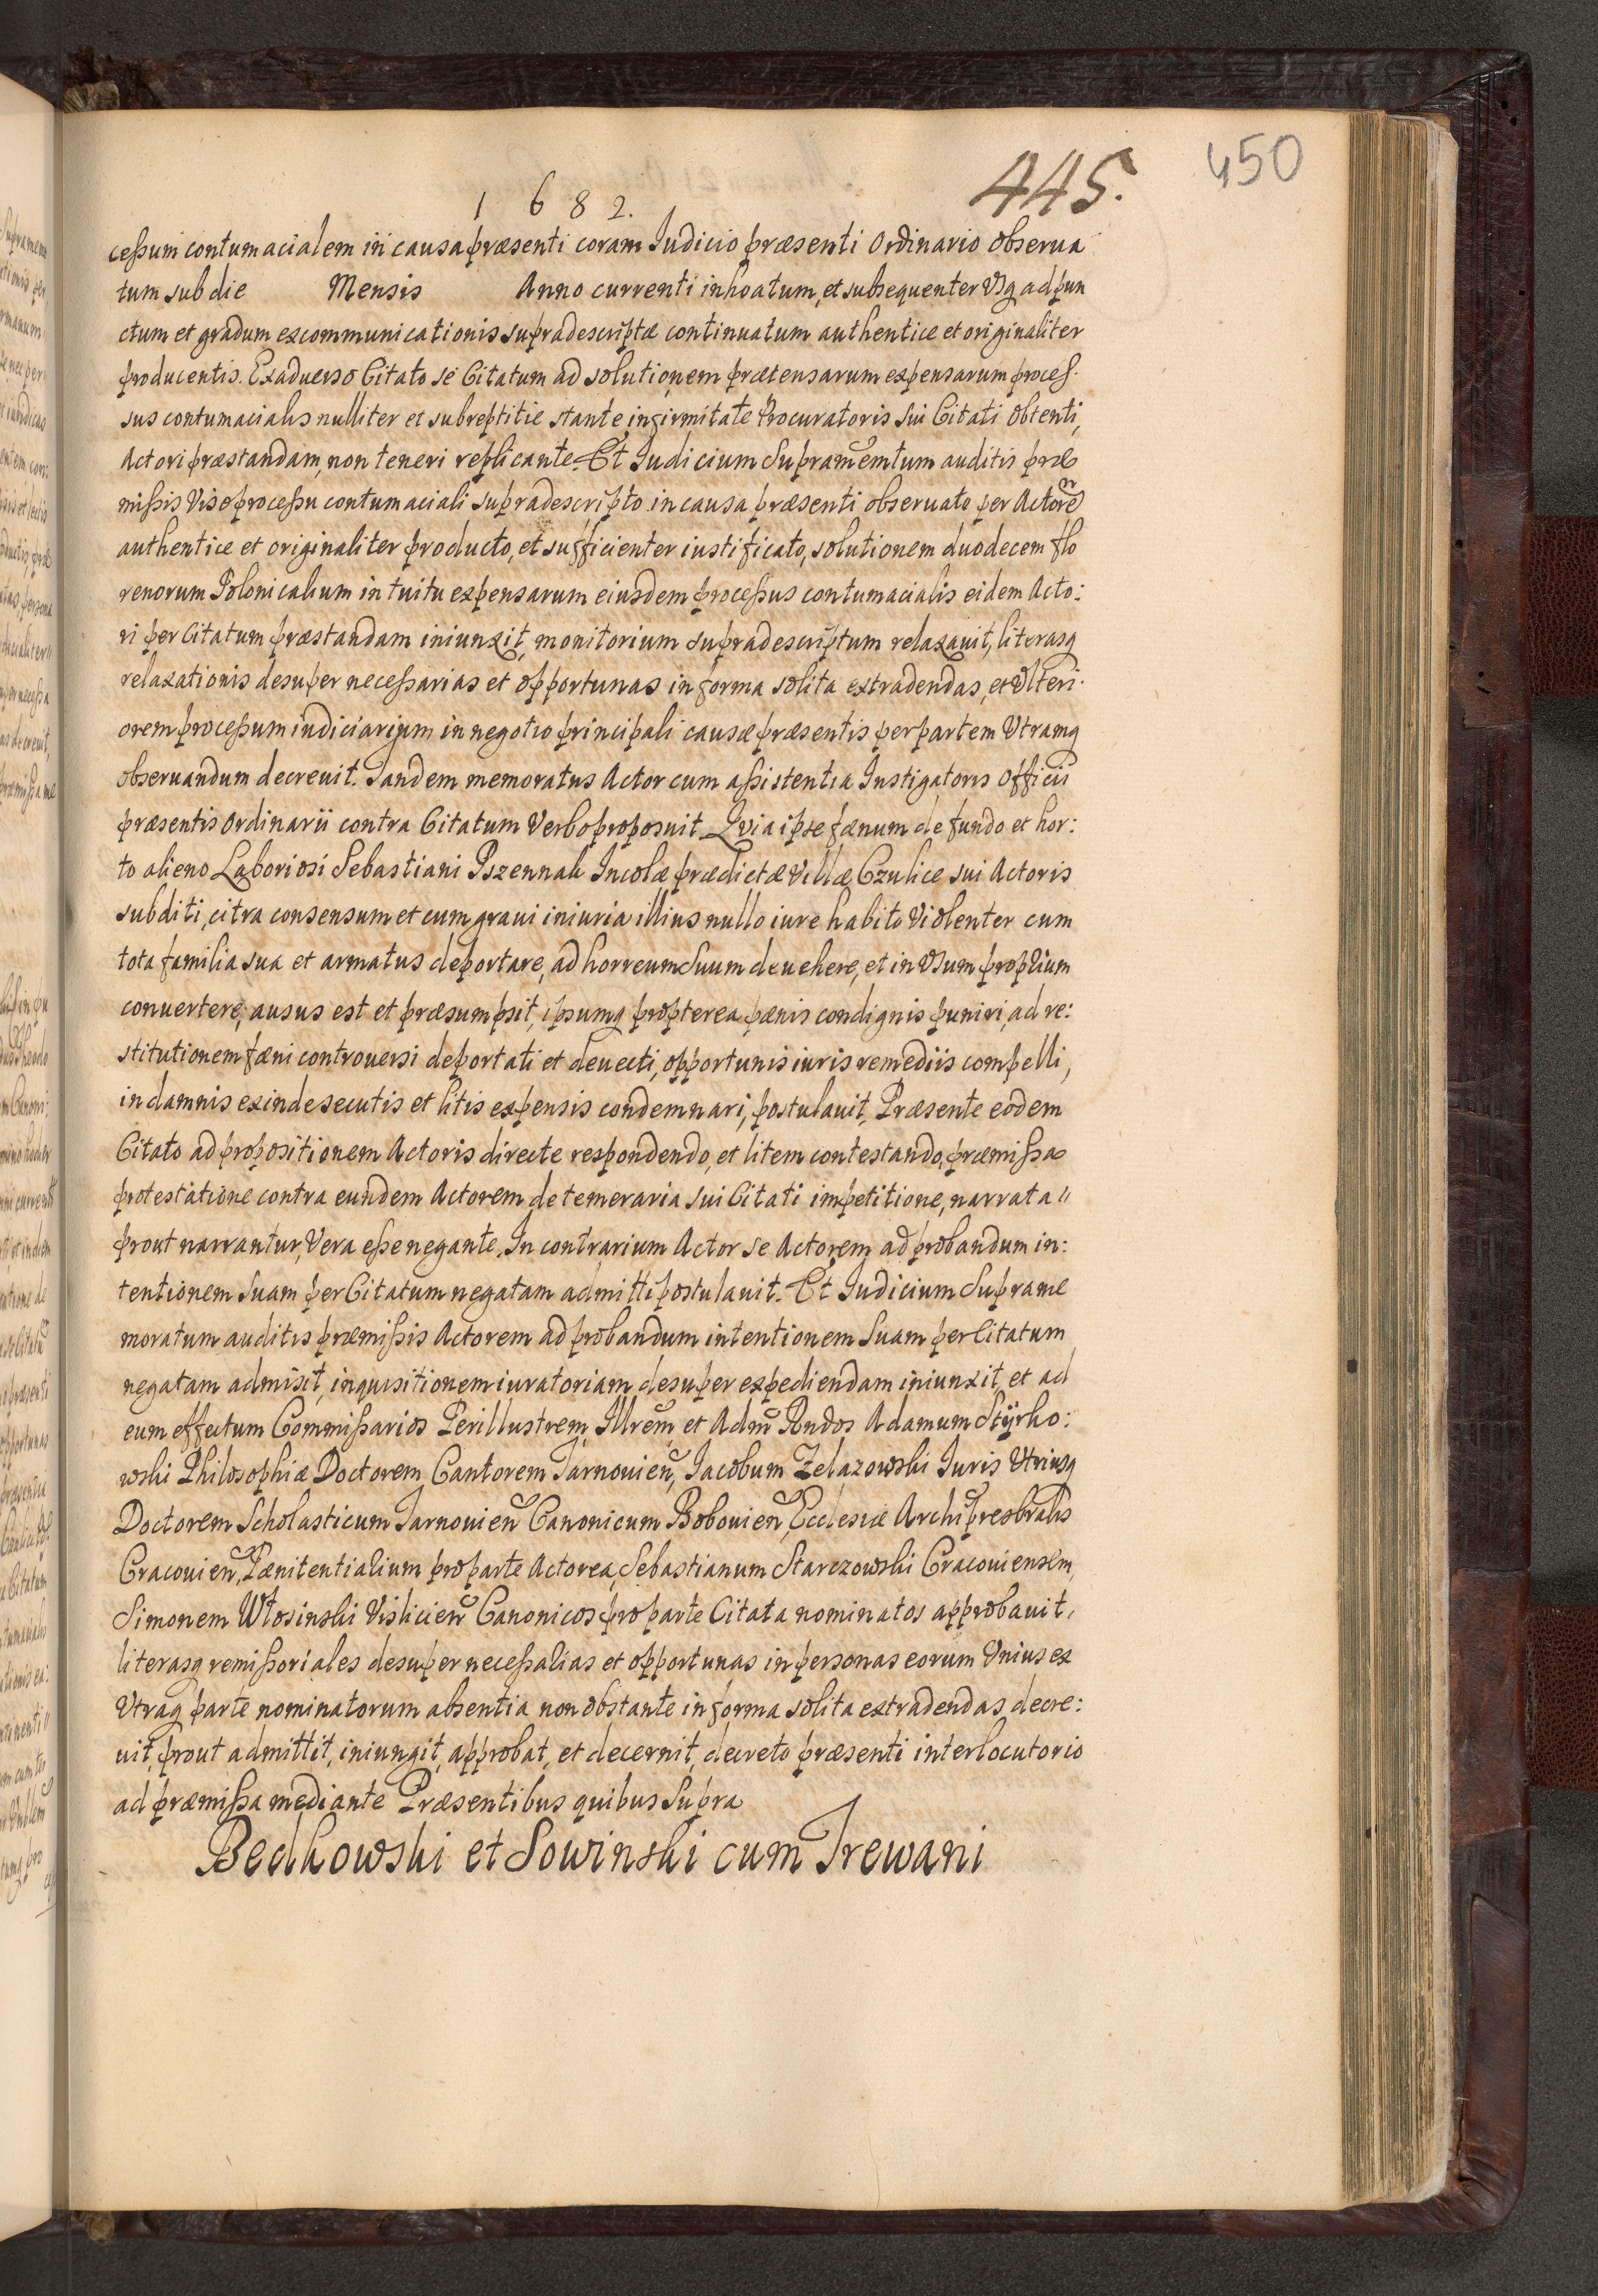 450
445.
1 6 8 2.
cessum contumacialem in causa præsenti coram Iudicio præsenti Ordinario obserua
tum sub die Mensis Anno currenti inhoatum, et subsequenter Vsq ad pun
ctum et gradum excommunicationis supradescriptæ continuatum authentice et originaliter
producentis. Exaduerso Citato se Citatum ad solutionem prætensarum expensarum proces.
sus contumacialis nulliter et subreptitie stante infirmitate Procuratoris sui Citati obtenti,
Actori præstandam, non teneri replicante. Et Iudicium Supramemtum auditis præ
missis Viso processu contumaciali supradescripto in causa præsenti obseruato per Actorẽ
authentice et originaliter producto, et sufficienter iustificato, solutionem duodecem flo
renorum Polonicalium intuitu expensarum eiusdem processus contumacialis eidem Acto:
ri per Citatum præstandam iniunxit, monitorium supradescriptum relaxauit, literasq
relaxationis desuper necessarias et opportunas in forma solita extradendas, et Vlteri.
orem processum iudiciarium in negotio principali causæ præsentis per partem Vtramq
obseruandum decreuit. Tandem memoratus Actor cum assistentia Instigatoris officii
præsentis Ordinarii contra Citatum Verbo proposuit Qvia ipse fænum de fundo et hor:
to alieno Laboriosi Sebastiani Pszennak Incolæ prædictæ Villæ Czulice sui Actoris
subditi, citra consensum et cum graui iniuria illius nullo iure habito Violenter cum
tota familia sua et armatus deportare, ad horreum Suum deuehere, et in Vsum proprium
conuertere, ausus est et præsumpsit, ipsumq propterea pænis condignis puniri, ad re:
stitutionem fæni controuersi deportati et deuecti, opportunis iuris remediis compelli,
in damnis exinde secutis et litis expensis condemnari, postulauit, Præsente eodem
Citato ad propositionem Actoris directe respondendo, et litem contestando, præmissa
protestatione contra eundem Actorem de temeraria sui Citati impetitione, narrata
prout narrantur, Vera esse negante. In contrarium Actor se Actorem ad probandum in:
tentionem Suam per Citatum negatam admitti postulauit. Et Iudicium Suprame
moratum auditis præmissis Actorem ad probandum intentionem Suam per Citatum
negatam admisit, inquisitionem iuratoriam desuper expediendam iniunxit, et ad
eum effectum Commissarios Perillustrem, Illrem et Adm Rndos Adamum Styrko:
wski Philosophiæ Doctorem Cantorem Tarnouien, Iacobum Zelazowski Iuris Vtriusq
Doctorem Scholasticum Tarnouien Canonicum Bobouien, Ecclesiæ Archipresbralis
Cracouien, Pænitentialium pro parte Actorea, Sebastianum Starczowski Cracouiensem,
Simonem Wtosinski Vislicien Canonicos pro parte Citata nominatos approbauit,
literasq remissoriales desuper necessarias et opportunas in personas eorum Vnius ex
Vtraq parte nominatorum absentia non obstante in forma solita extradendas decre:
uit, prout admittit, iniungit, approbat, et decernit, decreto præsenti interlocutorio
ad præmissa mediante Præsentibus quibus Supra
Bedkowski et Sowinski cum Trewani